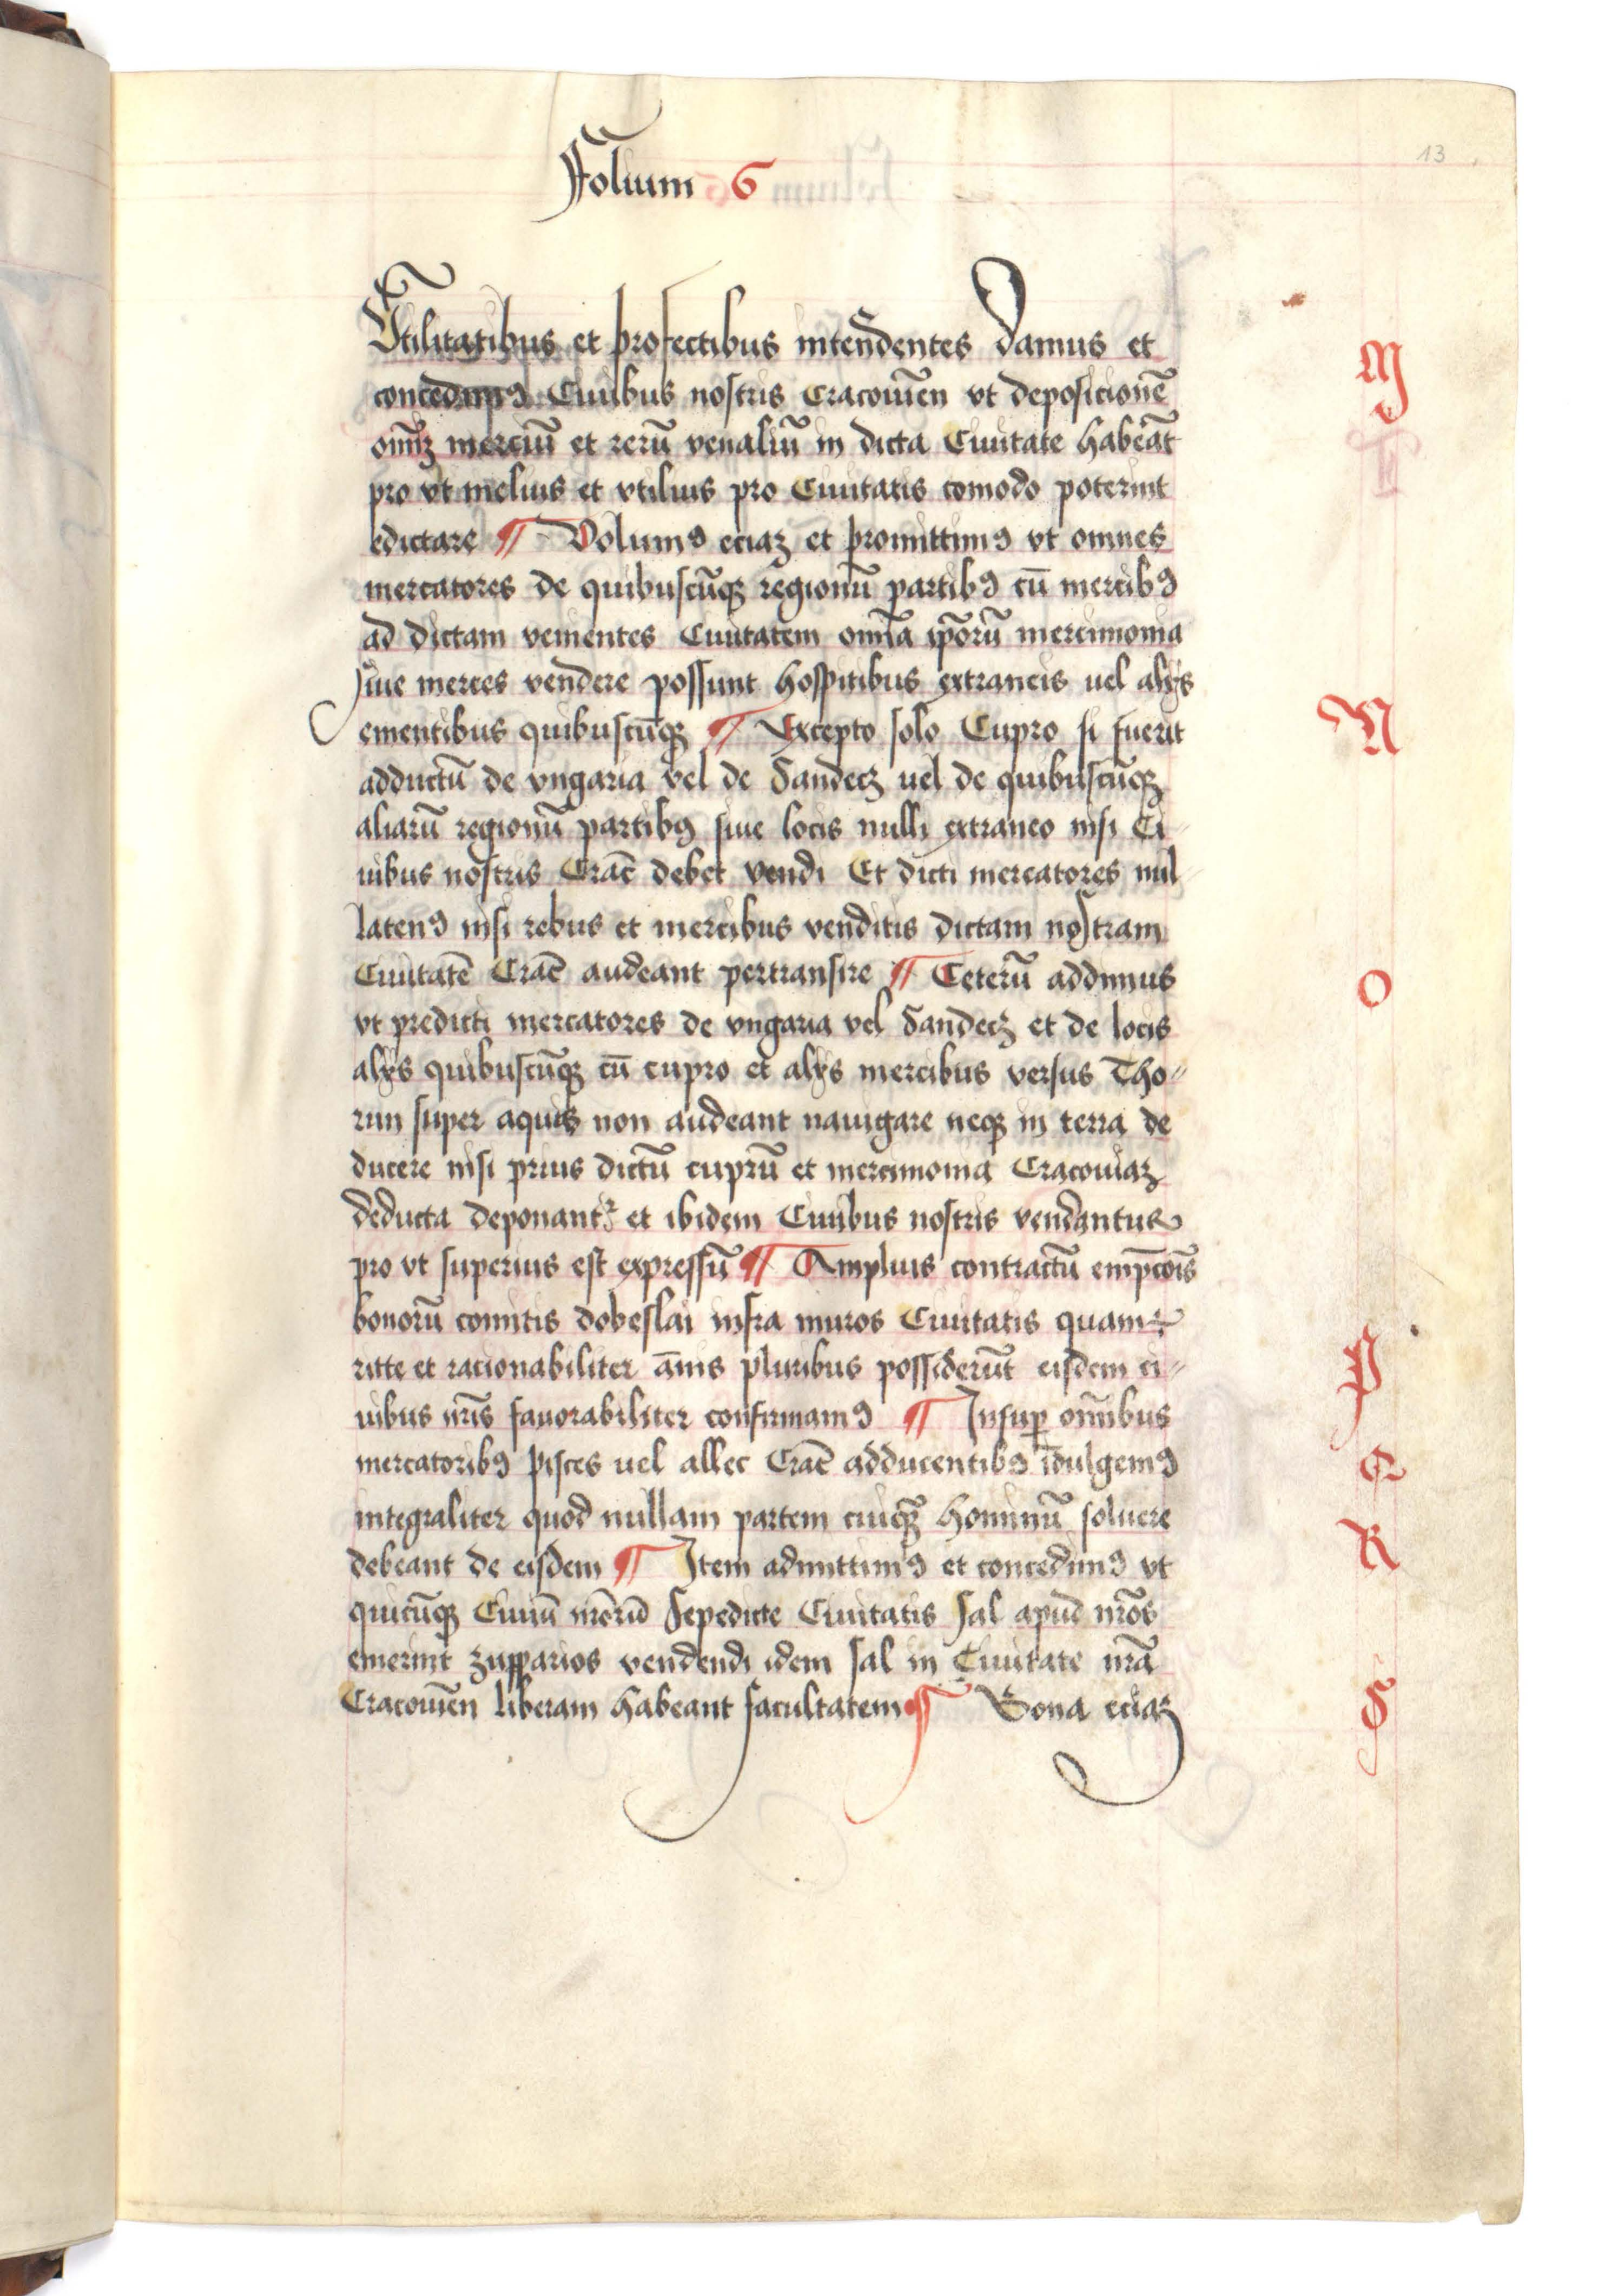 Folium 6
13
Vtilitatibus et profectibus intendentes Damus et
concedimꝰ Ciuibus nostris Cracouieñ vt deposicionē
om̄iꝫ merciū et rerū venaliū in dicta Ciuitate habeāt
pro vt melius et vtilius pro Ciuitatis comodo poterint
edictare ¶ Volumꝰ eciaꝫ et promittimꝰ vt omnes
mercatores de quibuscūqꝫ regionū partibꝰ cū mercibꝰ
ad dictam venientes Ciuitatem om̄ia ip̄orū mercimonia
siue merces vendere possunt hospitibus extraneis uel alijs
ementibus quibuscūqꝫ ¶ Excepto solo Cupro si fuerit
adductū de vngaria vel de Sandecꝫ uel de quibuscūqꝫ
aliarū regionū partibꝰ siue locis nulli extraneo nisi Ci
uibus nostris Crac̄ debet vendi Et dicti mercatores nul
latenꝰ nisi rebus et mercibus venditis dictam nostram
Ciuitatē Crac̄ audeant pertransire ¶ Ceterū addimus
vt predicti mercatores de vngaria vel Sandecꝫ et de locis
alijs quibuscūqꝫ cū cupro et alijs mercibus versus Tho〃
run super aquis non audeant nauigare neqꝫ in terra de
ducere nisi prius dictū cuprū et mercimonia Cracouiaꝫ
deducta deponant᷑ et ibidem Ciuibus nostris vendantur
pro vt superius est expressū ¶ Amplius contractū empc̄ois
bonorū comitis dobeslai infra muros Ciuitatis quam
ritte et racionabiliter a̅nis pluribus possiderūt eisdem ci〃
uibus nr̄is fauorabiliter confirmamꝰ ¶ Insuꝑ om̄ibus
mercatoribꝰ pisces uel allec Crac̄ adducentibꝰ īdulgemꝰ
integraliter quod nullam partem cuiqꝫ hominū soluere
debeant de eisdem ¶ Item admittimꝰ et concedimꝰ vt
quicūqꝫ Ciuiū nr̄orū Sepedicte Ciuitatis sal apud nr̄os
emerint zupparios vendendi idem sal in Ciuitate nr̄a
Cracouieñ liberam habeant facultatem ¶ Bona eciaꝫ
M
N
O
P
Q
R
S